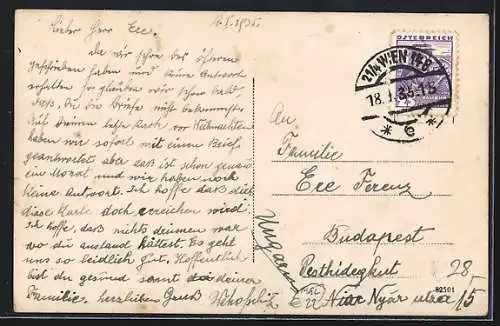 16.I.1935.
Lieber Herr Ece.
da wir schon des öfteren
geschrieben haben und keine Antwort
erhalten so glauben wir schon bald,
daß Du die Briefe nicht bekommst.
Auf Deinen letzten vor Weihnachten
haben wir sofort mit einem Brief
geantwortet aber daß ist schon genau
ein Monat und wir haben noch
keine Antwort. Ich hoffe daß dich
diese Karte doch erreichen wird.
Ich hoffe, daß nichts war
wo du anstand hättest. Es geht
uns so leidlich gut. Hoffentlich
bist du gesund samt deiner
Familie. Herzlichen Gruß
ÖSTERREICH
24
21/1 WIEN
18.I.35
* e *
An
Familie
Ece Ferenz
Budapest
Pesthidegkut
Nyár utca 5
Ungarn
92501
28-